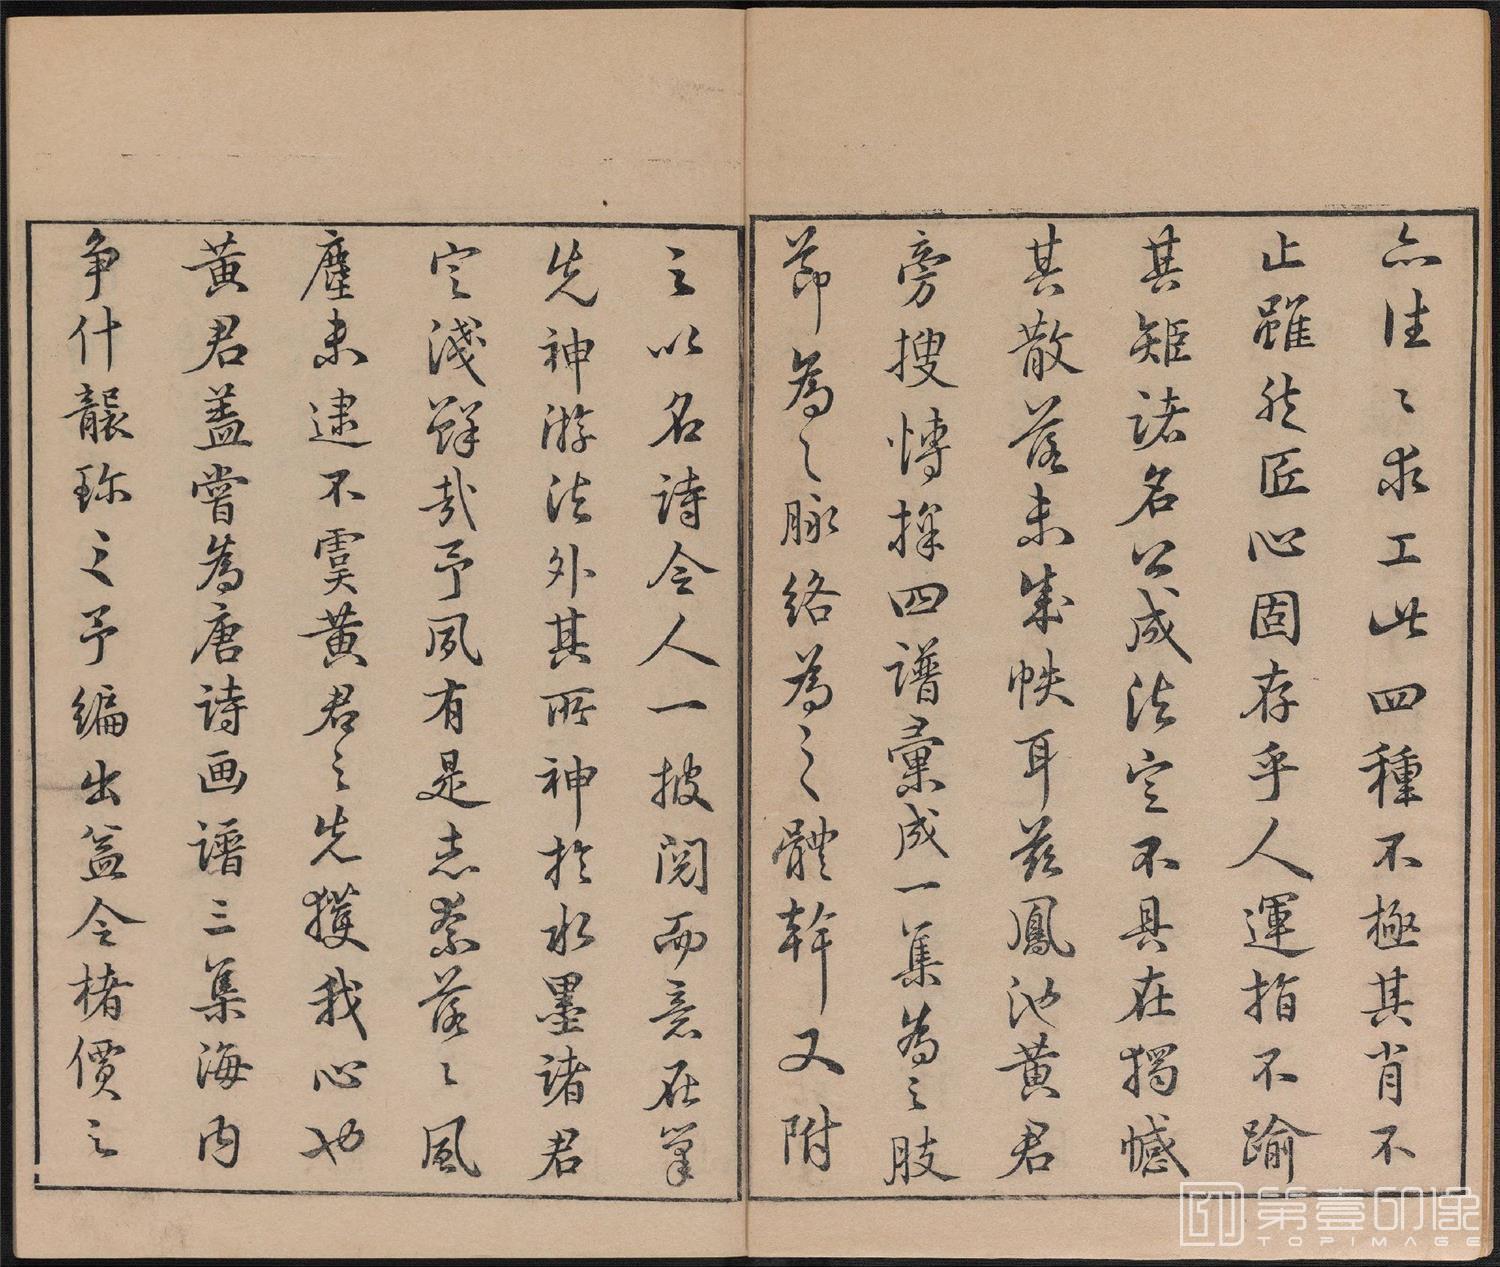 亦往〻求工此四種不極其肖不
止雖然匠心固存乎人運指不踰
其矩諸名公成法定不具在獨憾
其散落未成帙耳茲鳳池黃君
旁搜博採四譜彙成一集為之肢
節為之脉絡為之體幹又附
之以名詩令人一披閱而意在筆
先神游法外其所神於水墨諸君
定淺鮮哉予夙有是志柰落〻風
塵未逮不虞黃君之先獲我心也
黃君蓋嘗為唐詩画譜三集海內
争什襲珍之予編出益令楮價之
第壹印像
TOPIMAGE